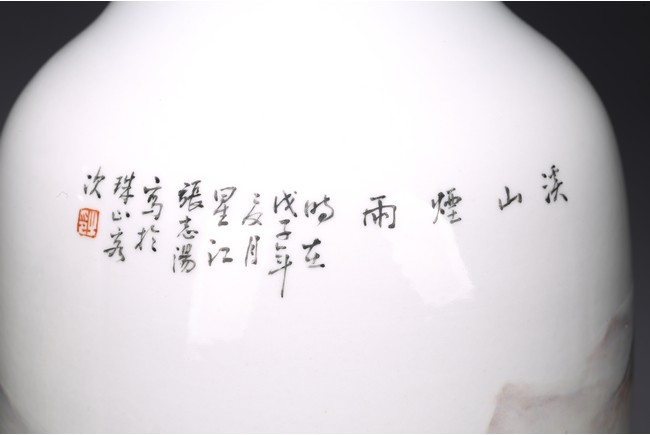 溪山煙雨
時在
戊子年
夏月
星江
張志湯
寫於
珠山客
次